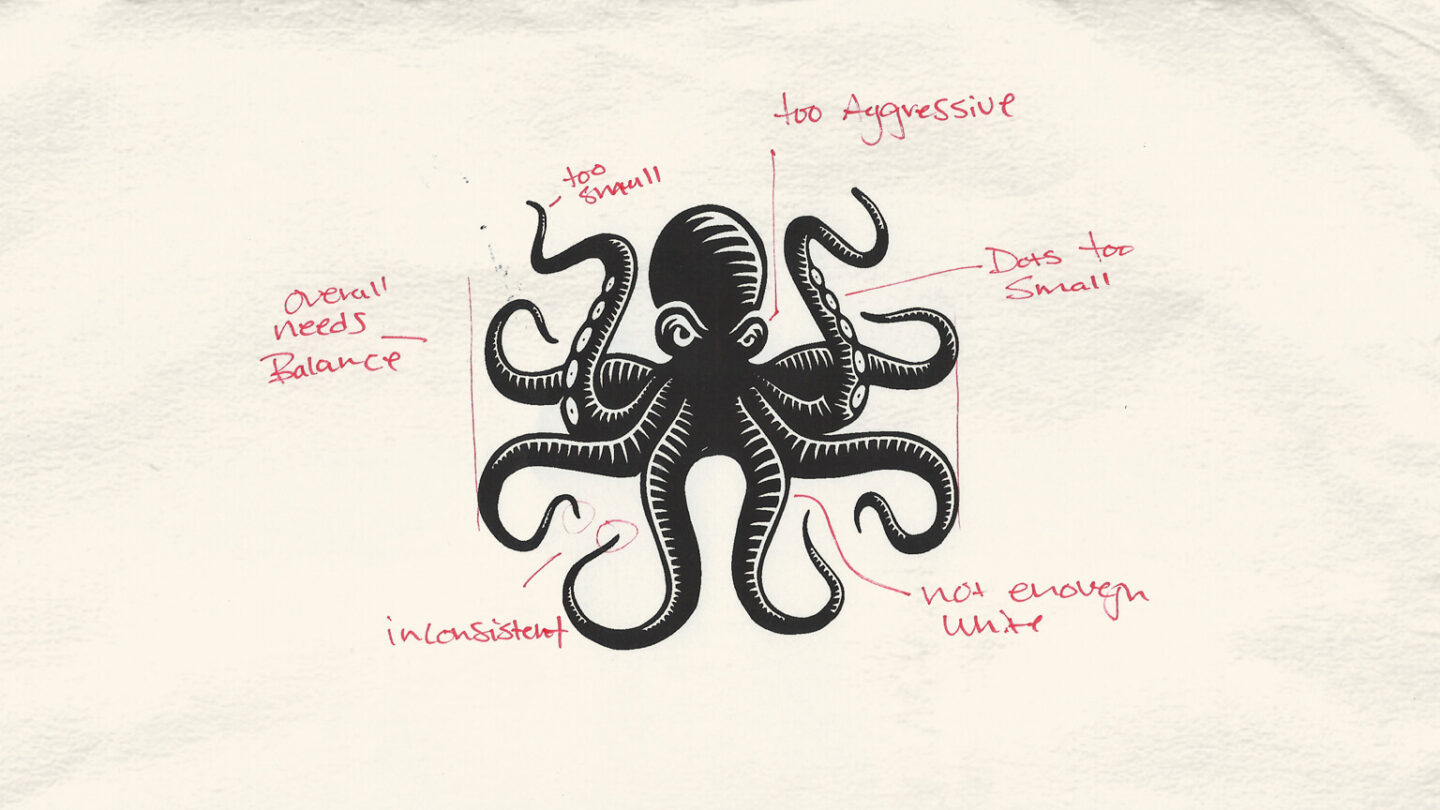 too Aggressive
too
small
Dots too
Small
overall
needs
Balance
inconsistent
not enough
White